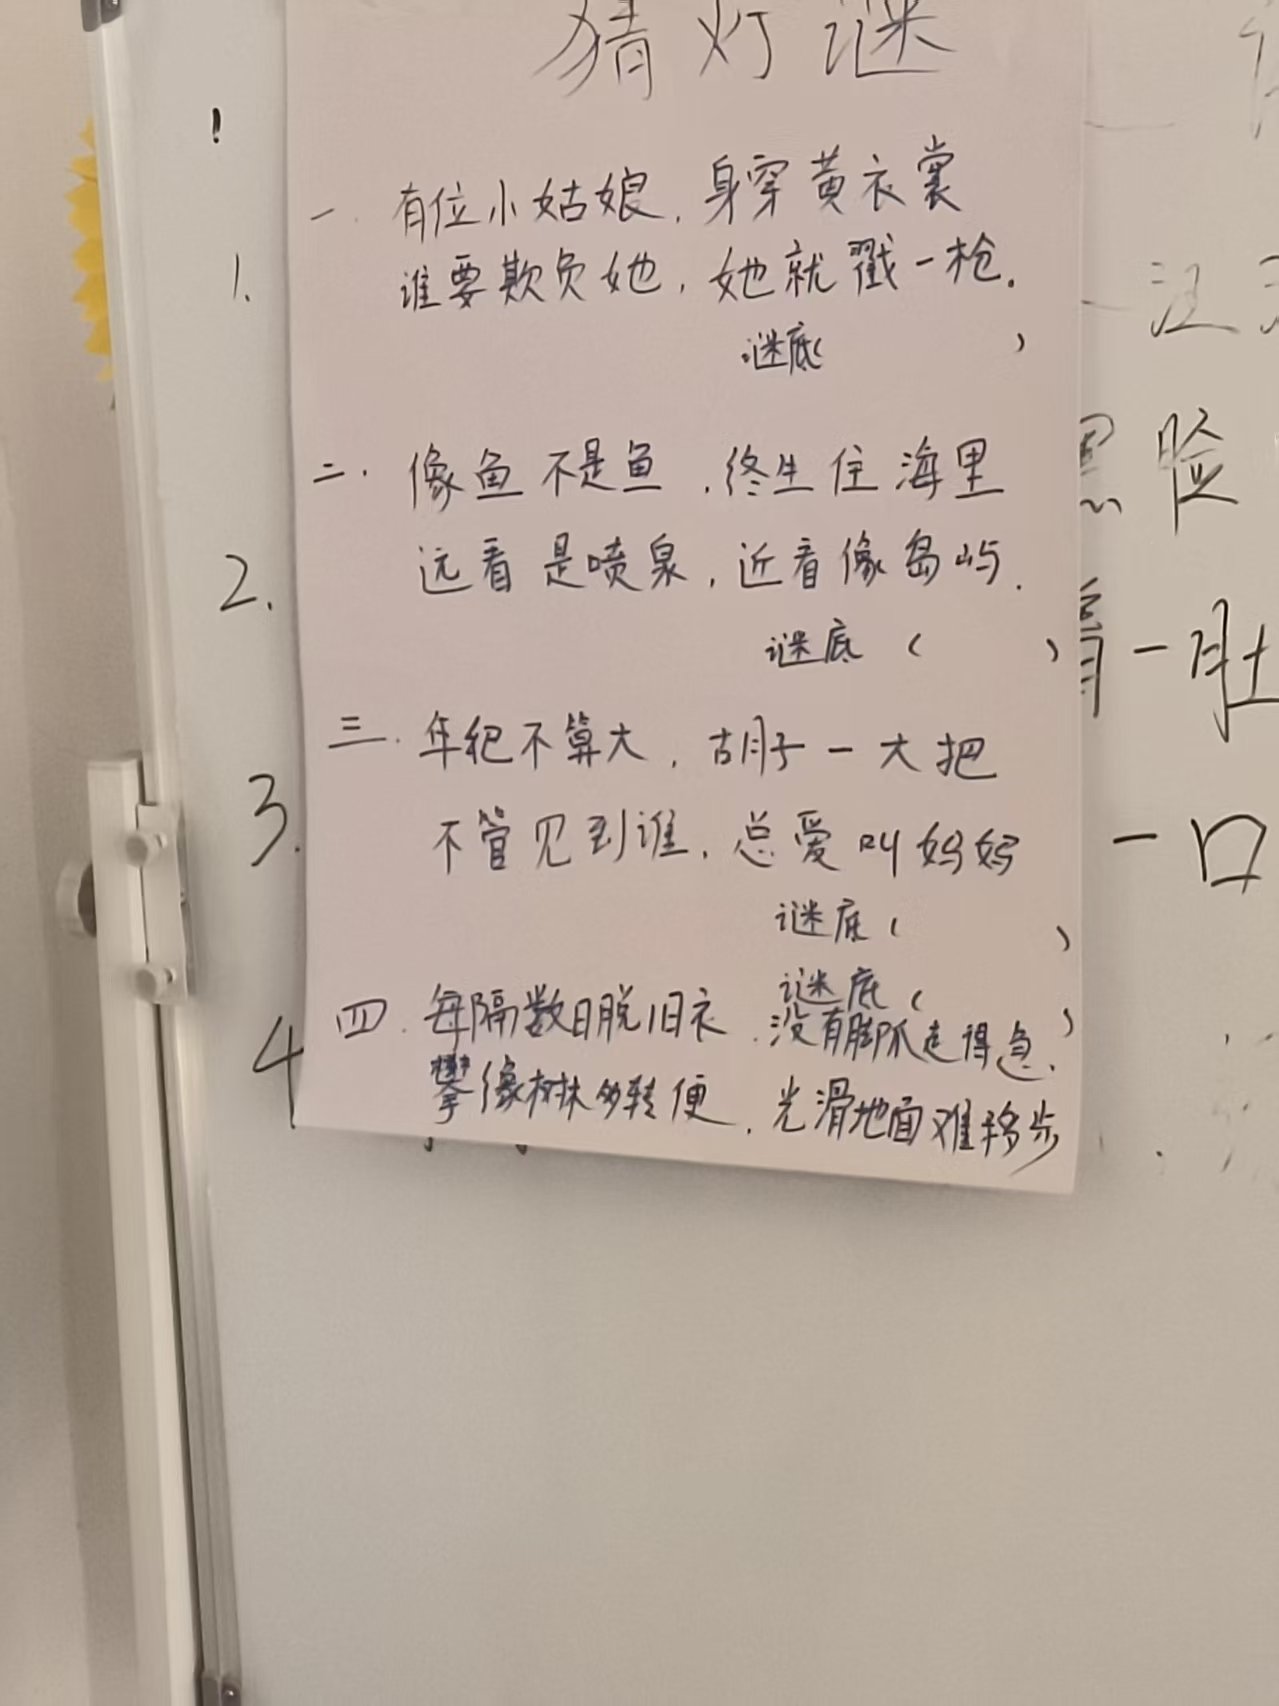 猜灯谜
一. 有位小姑娘, 身穿黄衣裳
1. 谁要欺负她, 她就戳一枪.
谜底( )
二. 像鱼不是鱼, 终生住海里
2. 远看是喷泉, 近看像岛屿.
谜底( )
三. 年纪不算大, 胡子一大把
3. 不管见到谁, 总爱叫妈妈
谜底( )
谜底( )
四. 每隔数日脱旧衣. 没有脚爪走得急.
4 攀像树株多转便, 光滑地面难移步
一汪
脸
一肚
一口